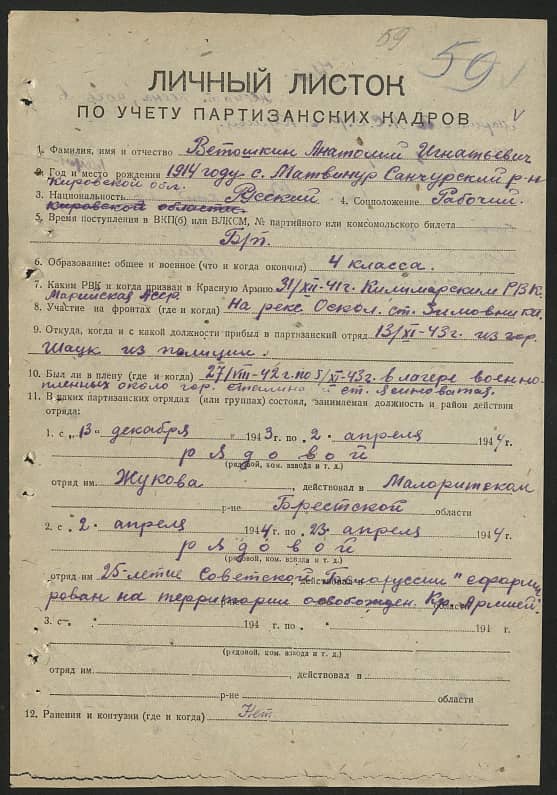 59
59
ЛИЧНЫЙ ЛИСТОК
ПО УЧЕТУ ПАРТИЗАНСКИХ КАДРОВ
1. Фамилия, имя и отчество Ветошкин Анатолий Игнатьевич
2. Год и место рождения 1914 году с. Матвинур Санчурский р-н
Кировской обл.
3. Национальность Русский 4. Соцположение Рабочий.
Кировской областис.
5. Время поступления в ВКП(б) или ВЛКСМ, № партийного или комсомольского билета
Б/п.
6. Образование: общее и военное (что и когда окончил) 4 класса.
7. Каким РВК и когда призван в Красную Армию 31/XII-41г. Килимарским РВК.
Марийская Асср
8. Участие на фронтах (где и когда) На реке Оскол. ст. Зимовники.
9. Откуда, когда и с какой должности прибыл в партизанский отряд 13/XII-43г. из гор.
Шацк из полиции.
10. Был ли в плену (где и когда) 27/VIII-42г. по 5/XI-43г. в лагере военно-
пленных около гор. Сталина ст. Ясиноватая.
11. В каких партизанских отрядах (или группах) состоял, занимаемая должность и район действия
отряда:
1. с „13" декабря 1943г. по „2. апреля 1944г.
рядовой
(рядовой, ком. взвода и т. д.)
отряд им. Жукова, действовал в Малоритском
р-не Брестской области
2. с „2. апреля 1944г. по „23. апреля 1944г.
рядовой
(рядовой, ком. взвода и т. д.)
отряд им 25-летие Советской Белоруссии" сформи
рован на территории освобожден. Кр. Армией.
3. с „ 194 г. по „ 194 г.
(рядовой, ком. взвода и т. д.)
отряд им. , действовал в
р-не области
12. Ранения и контузии (где и когда) Нет